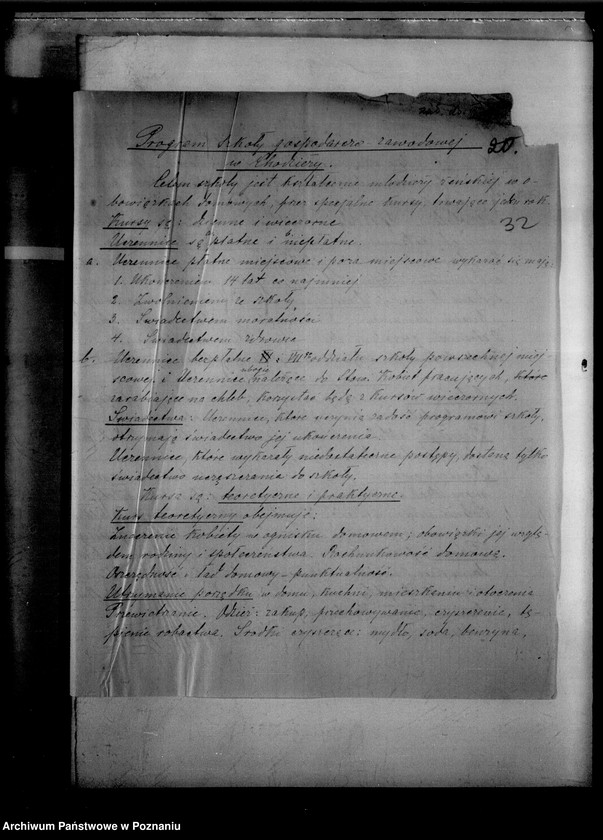 Program Szkoły gospodarczo zawodowej
20.
w Chodzieży.
Celem szkoły jest kształcenie młodzieży żeńskiej w o-
bowiązkach domowych, przez specjalne kursy, trwające rok.
32
Kursy są: dzienne i wieczorne.
Uczennice są płatne i niepłatne.
a. Uczennice płatne miejscowe i poza miejscowe wykazać się mają:
1. Ukończeniem 14 lat co najmniej
2. Zwolnieniem ze szkoły
3. Świadectwem moralności
4. Świadectwem zdrowia
b. Uczennice bezpłatne: oddziału szkoły powszechnej miej-
scowej i Uczennice ubogie należące do Stow. Kobiet pracujących, które
zarabiając na chleb, korzystać będą z kursów wieczornych.
Świadectwa: Uczennice, które uczynią zadość programowi szkoły,
otrzymają świadectwo jej ukończenia.
Uczennice, które wykazały niedostateczne postępy, dostaną tylko
świadectwo uczęszczania do szkoły.
Kursa są: teoretyczne i praktyczne.
Kurs teoretyczny obejmuje:
Znaczenie kobiety w ognisku domowem; obowiązki jej wzglę-
dem rodziny i społeczeństwa. Rachunkowość domowa.
Oszczędność i ład domowy - punktualność.
Utrzymanie porządku w domu, kuchni, mieszkaniu i otoczeniu
Przewietrzanie. Odzież: zakup, przechowywanie, czyszczenie, tę-
pienie robactwa. Środki czyszczące: mydło, soda, benzyna,
Archiwum Państwowe w Poznaniu